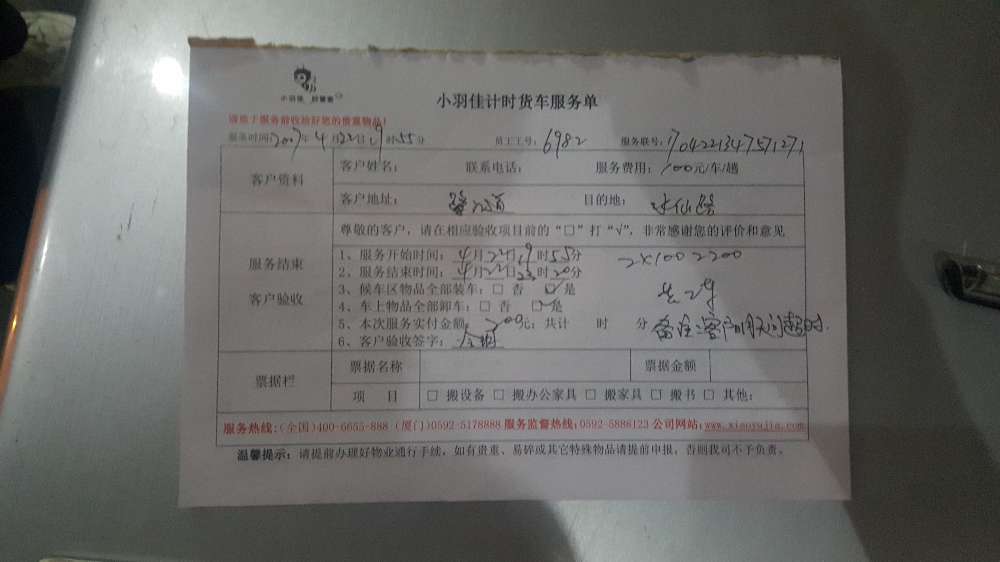 小羽佳计时货车服务单
请您于服务前收拾好您的贵重物品!
服务时间:2017年4月22日19时55分 员工工号:6982 服务联号:704221347571271
客户资料 客户姓名: 联系电话: 服务费用:100元/车/趟
客户地址: 目的地:
尊敬的客户,请在相应验收项目前的“□”打“√”,非常感谢您的评价和意见
服务结束
客户验收
1、服务开始时间:4月22日19时55分 2×100=200
2、服务结束时间:4月22日23时20分
3、候车区物品全部装车:□ 否 ☑是
4、车上物品全部卸车:□ 否 ☑是
5、本次服务实付金额:200元;共计 时 分
6、客户验收签字:
票据栏 票据名称 票据金额
项 目 □ 搬设备 □ 搬办公家具 □ 搬家具 □ 搬书 □ 其他:
服务热线:(全国)400-6655-888 (厦门)0592-5178888 服务监督热线:0592-5886123 公司网站:www.xiaoyujia.com
温馨提示:请提前办理好物业通行手续,如有贵重、易碎或其它特殊物品请提前申报,否则我司不予负责。